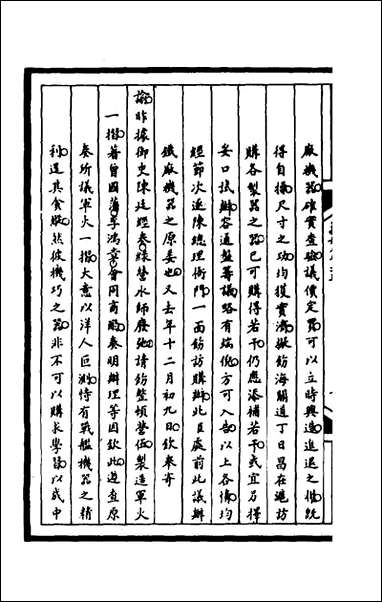 廠機器確實查驗議價定買可以立時興造進退之權既
得自操尺寸之功均獲實濟擬飭海關道丁日昌在滬訪
購各製器之器已可購得若干仍應添補若干或宜另擇
妥口試辦容通盤籌議略有端倪方可入告以上各情均
經節次逕陳總理衙門一面飭訪購辦此臣處前此議辦
鐵廠機器之原委也又去年十二月初九日欽奉寄
諭昨據御史陳廷經奏綠營水師廢弛請飭整頓營伍製造軍火
一摺著曾國藩李鴻章會同商酌奏明辦理等因欽此遵查原
奏所議軍火一摺大意以洋人叵測恃有戰艦機器之精
利逞其貪縱然彼機巧之器非不可以購求學習以成中